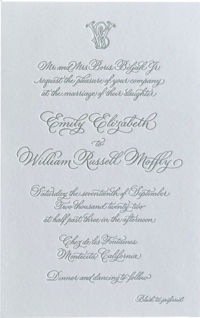 Mr. and Mrs. Boris
request the pleasure of your company
at the marriage of their daughter
Emily Elizabeth
to
William Russell
Saturday the seventeenth of September
Two thousand twenty-two
at half past three in the afternoon
Chez des Fontaines
Montecito, California
Dinner and dancing to follow